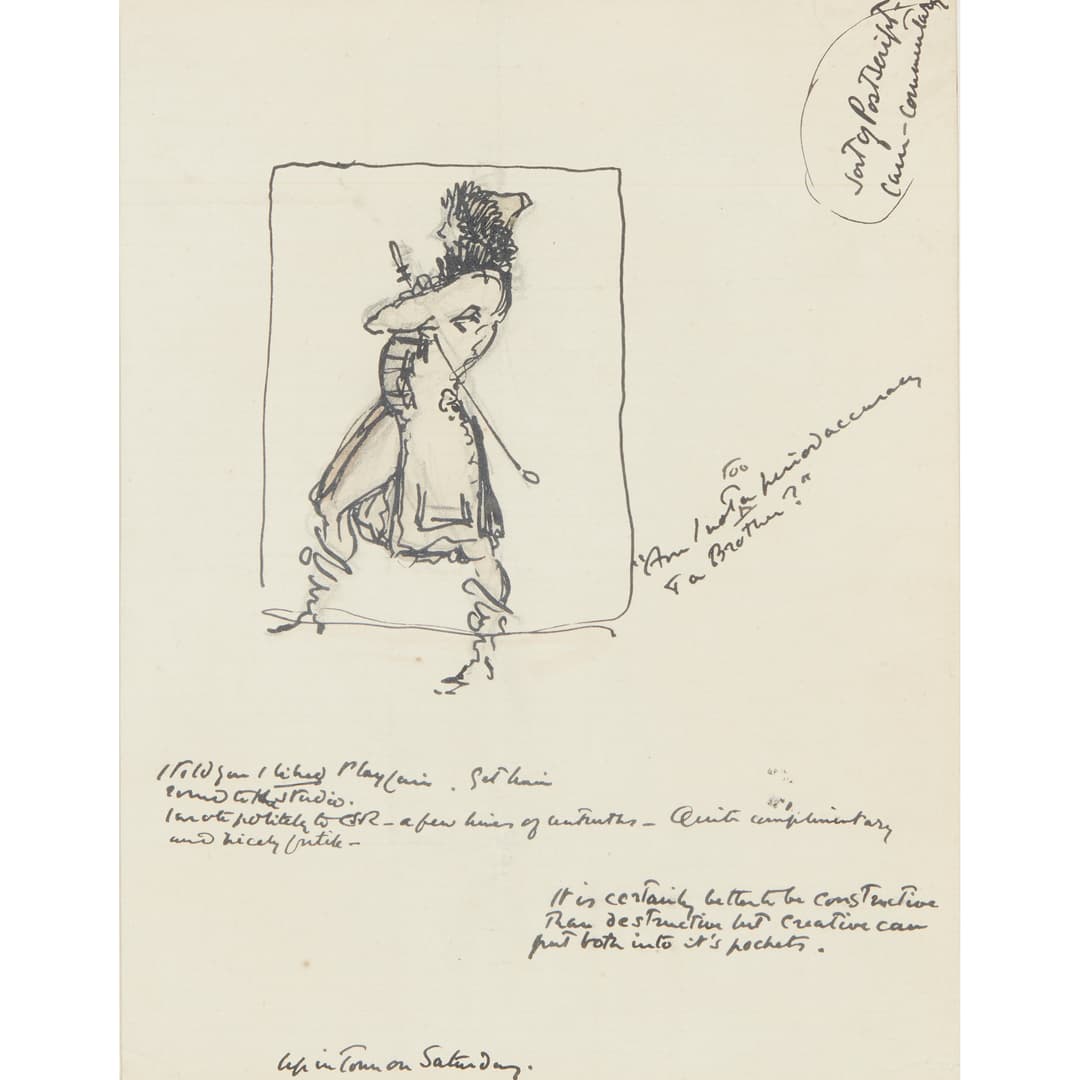 Sort of Postscript.
cum-commentary
Too
"Am I not a period accuracy
& a Brother?"
I told you I liked Playfair. Get him
round to the studio.
I wrote politely to CSR - a few lines of untruths - Quite complimentary
and nicely futile -
It is certainly better to be constructive
than destructive but creative can
put both into it's pockets.
Up in Town on Saturday.